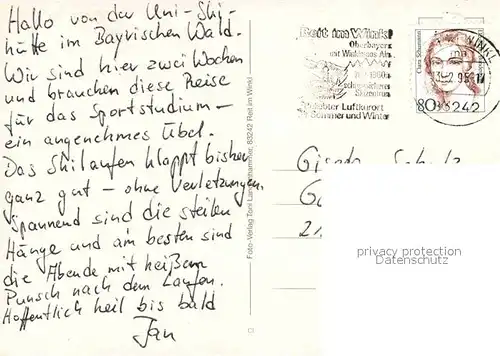 Hallo von der Uni-Ski-
hütte im Bayrischen Wald.
Wir sind hier zwei Wochen
und brauchen diese Reise
für das Sportstudium –
ein angenehmes Übel.
Das Skilaufen klappt bisher
ganz gut – ohne Verletzungen.
Spannend sind die steilen
Hänge und am besten sind
die Abende mit heißem
Punsch nach dem Laufen.
Hoffentlich heil bis bald
Jan
Foto-Verlag Toni 83242 Reit im Winkl
Reit im Winkl
Oberbayern
mit Winklmoos Alm
Skizentrum
beliebter Luftkurort
Sommer und Winter
WINKL
83242
Clara Schumann
80
Gisela
privacy protection
Datenschutz